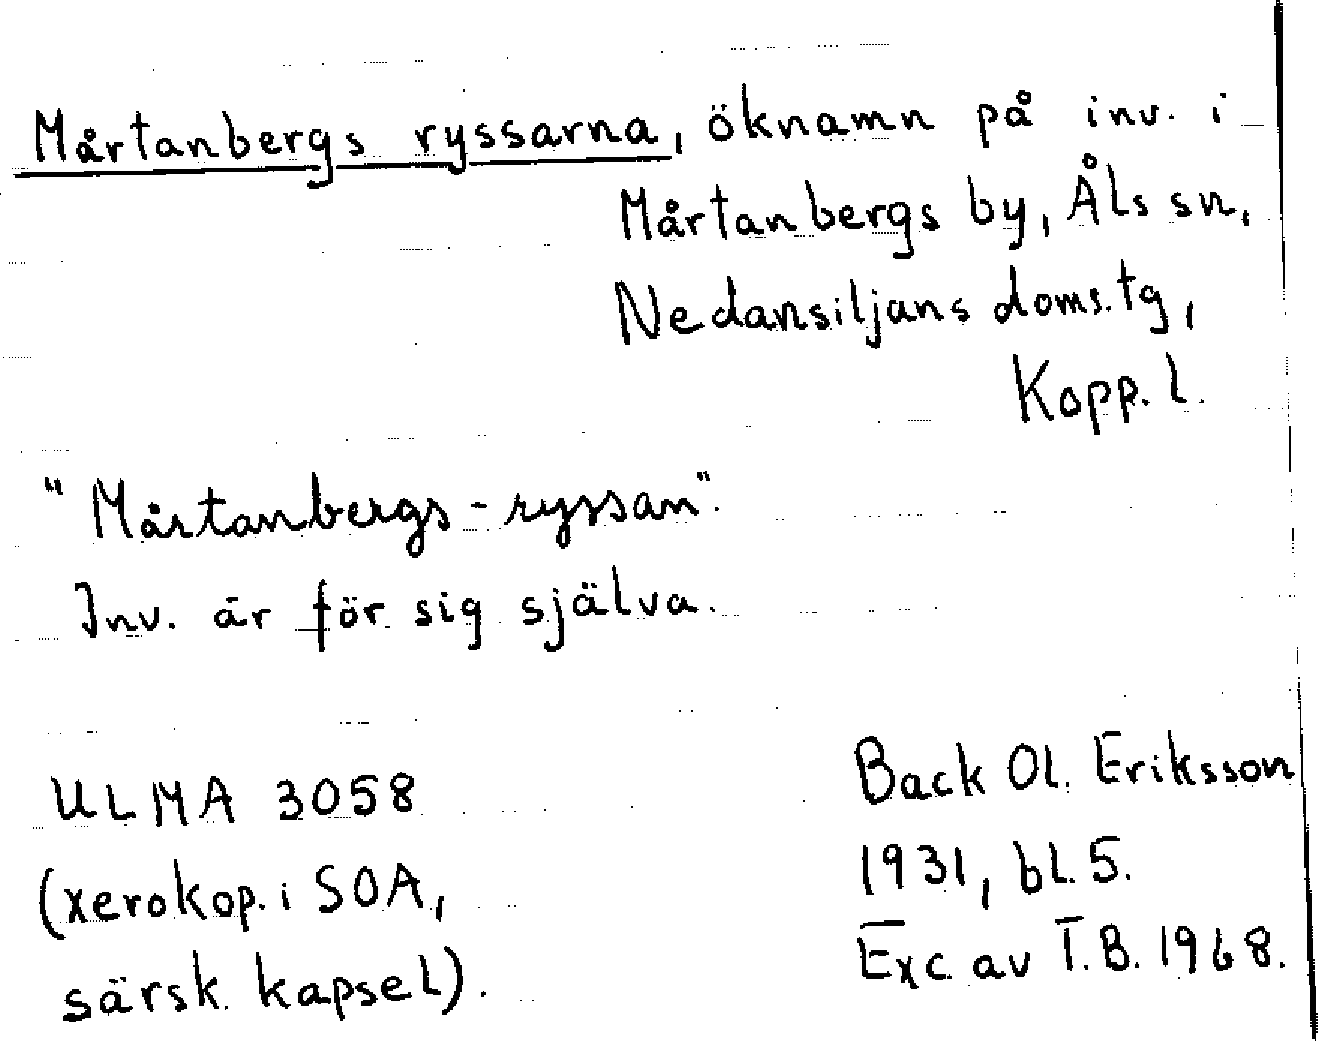 Mårtanbergs ryssarna, öknamn på inv. i
Mårtanbergs by, Åls sn,
Nedansiljans doms.tg,
Kopp. l.
"Mårtanbergs-ryssan".
Inv. är för sig själva.
ULMA 3058
(xerokop. i SOA,
särsk. kapsel).
Back Ol. Eriksson
1931, bl. 5.
Exc av T.B. 1968.